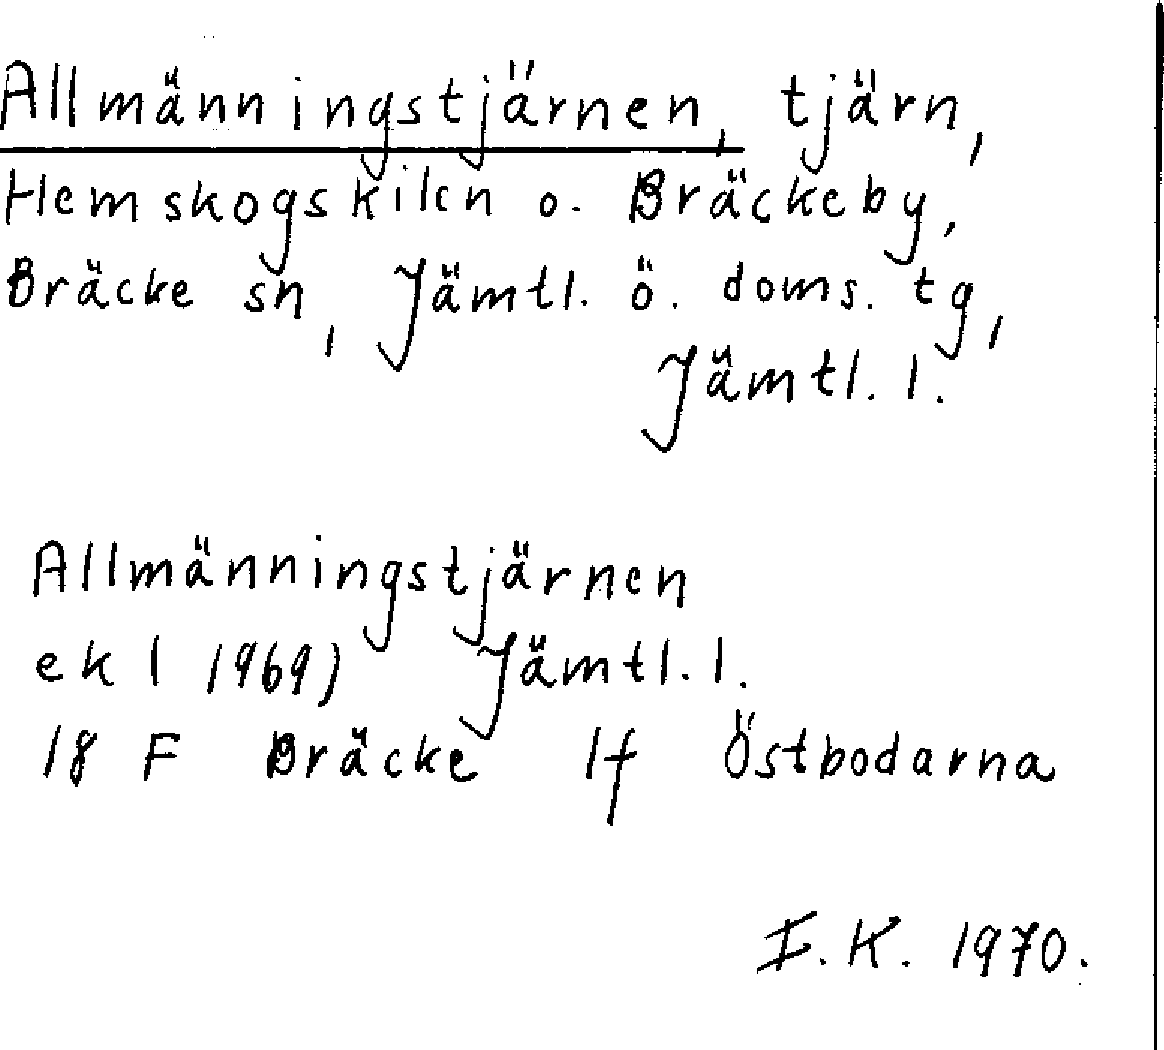 Allmänningstjärnen, tjärn,
Hemskogskilen o. Bräckeby,
Bräcke sn, Jämtl. ö. doms. tg,
Jämtl. l.
Allmänningstjärnen
ek l 1969) Jämtl. l.
18 F Bräcke 1f Östbodarna
I. K. 1970.